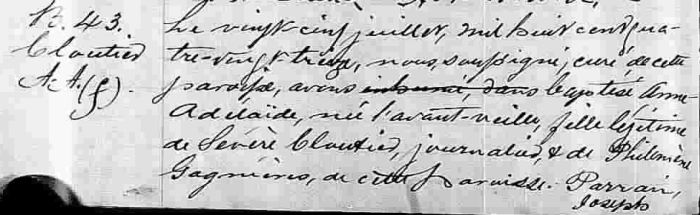 B. 43.
Cloutier
A. A. (f).
Le vingt-cinq juillet, mil huit cent qua-
tre-vingt-treize, nous, soussigné, curé de cette
paroisse, avons inhumé, dans baptisé Anne-
Adélaïde, née l'avant-veille, fille légitime
de Sévère Cloutier, journalier, & de Philomène
Gagnières, de cette paroisse. Parrain,
Joseph